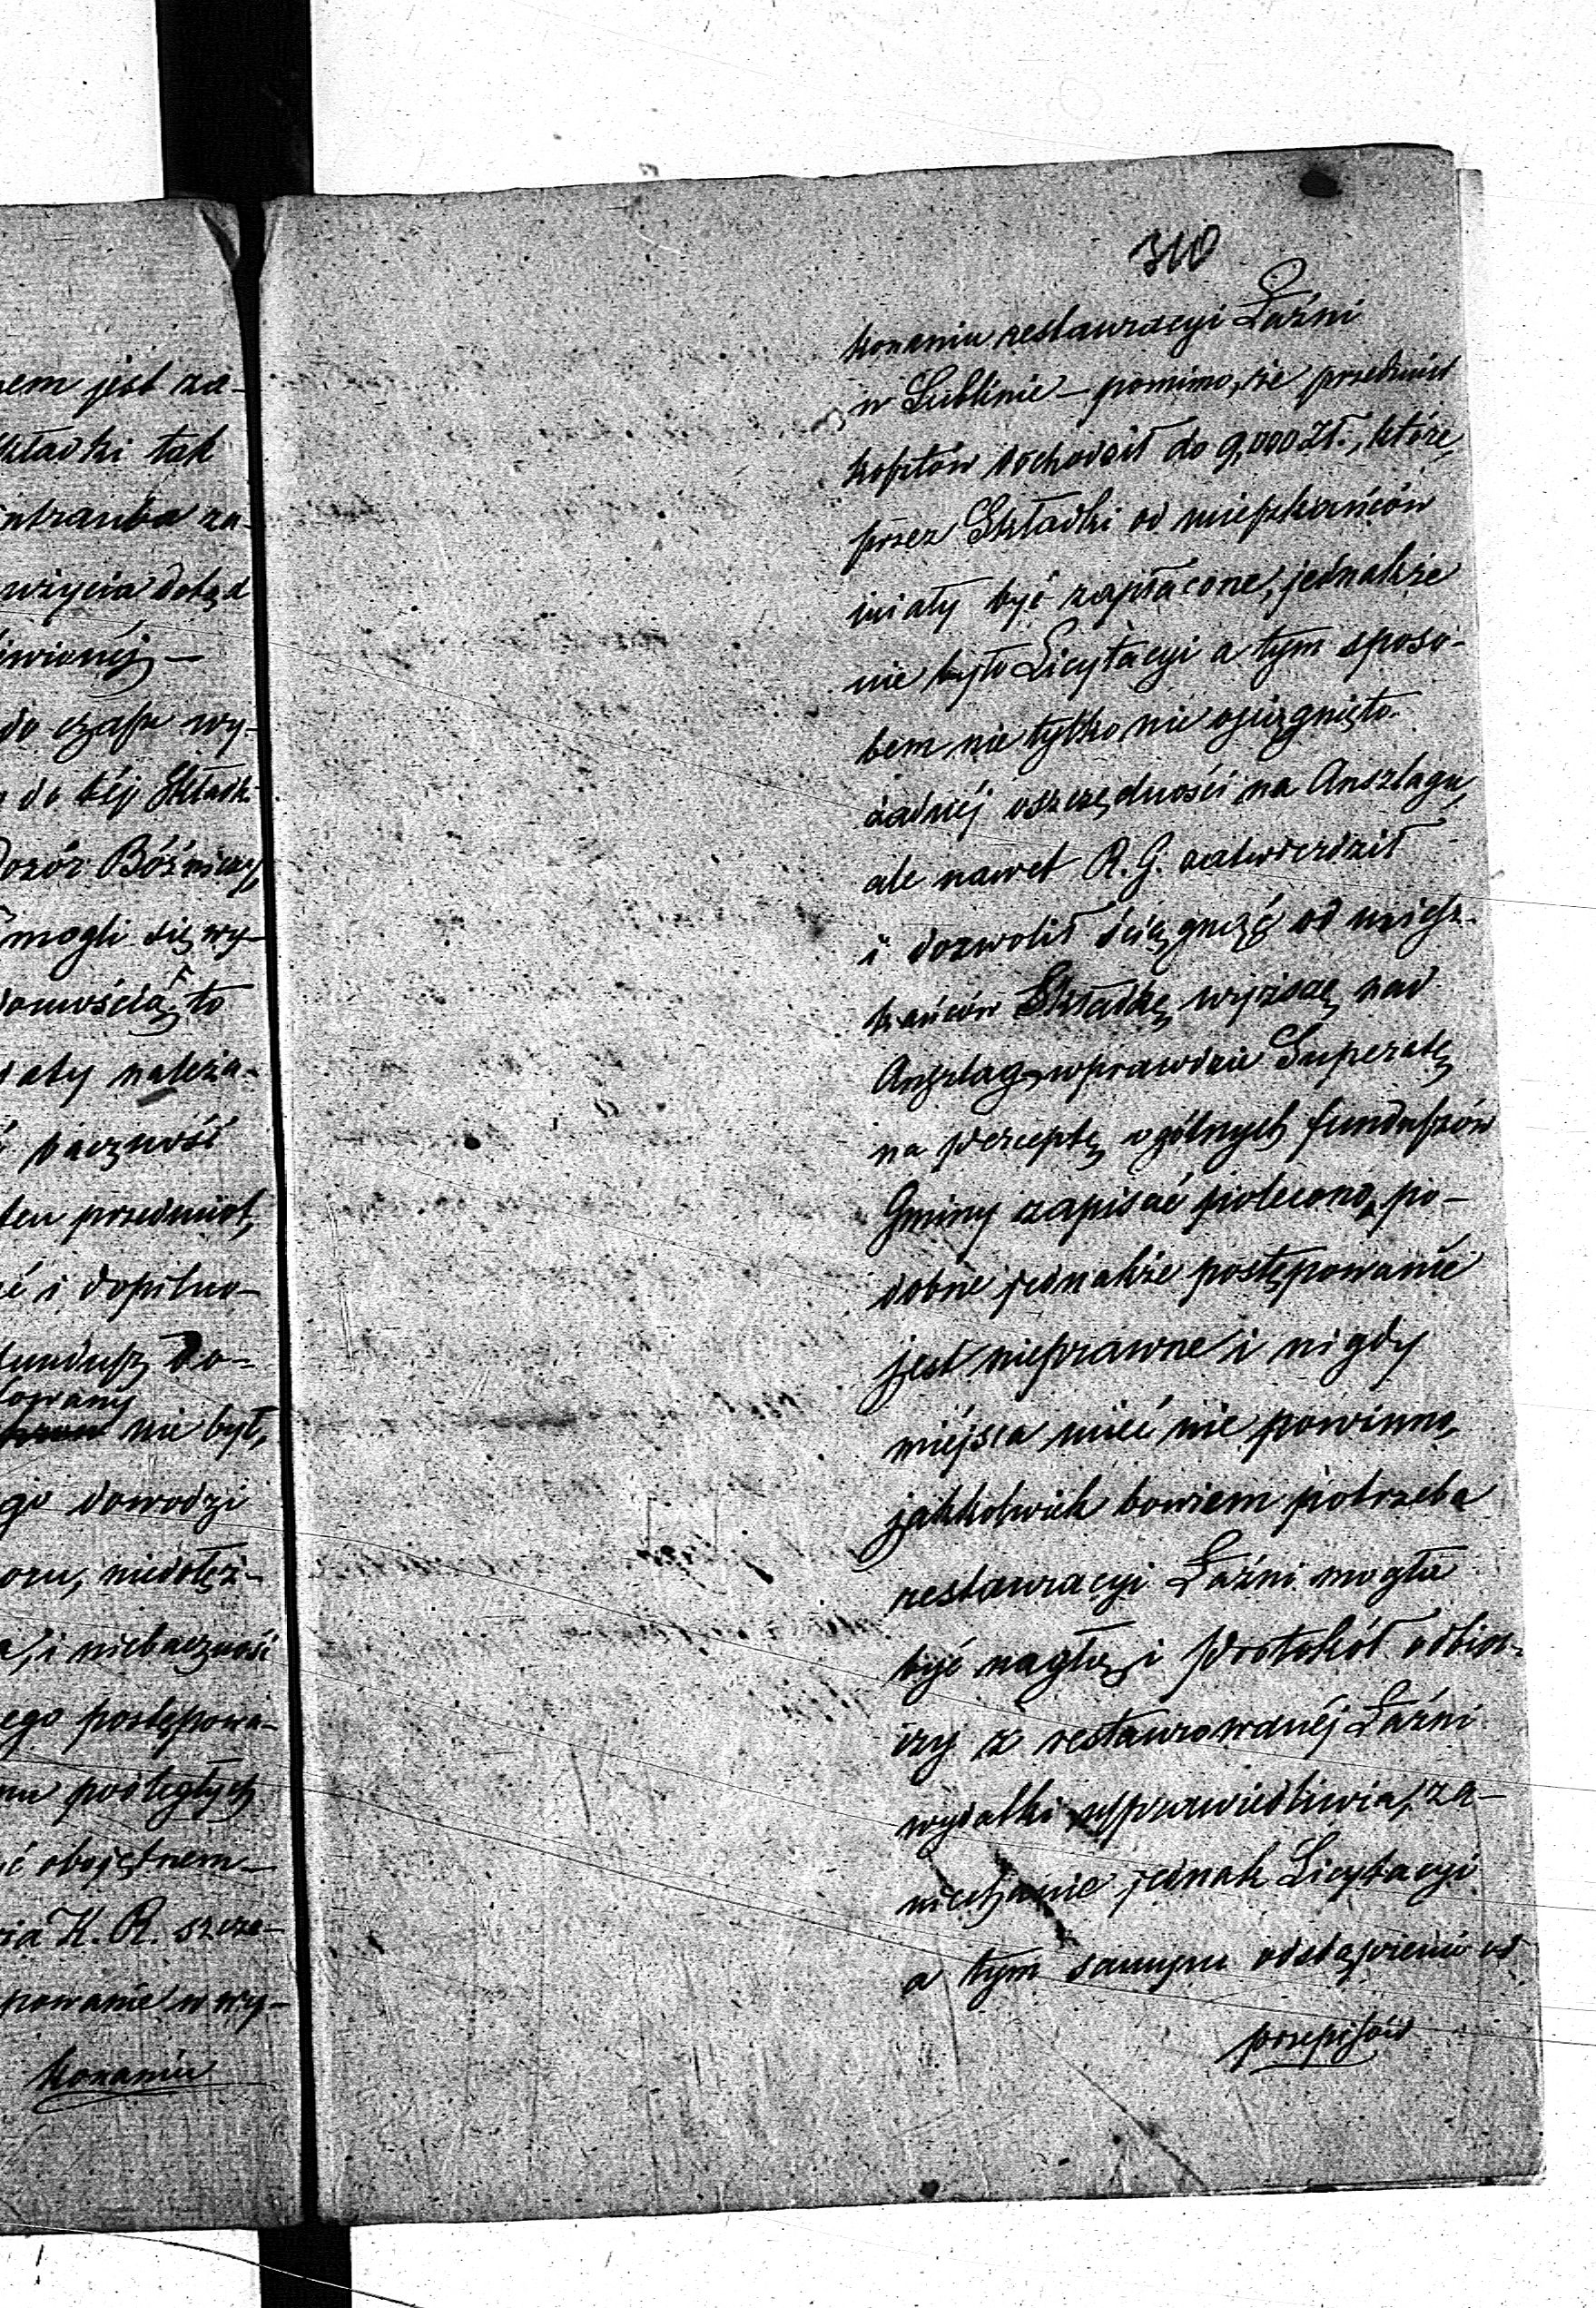 nem jest za-
kładki tak
entrauba za-
użycia dotąd
ówionéj —
do czasu wy-
do téj Składk
Dozór Bóżniczy,
mogli się wy-
domością, to
należa-
baczność
ten przedmiot,
ć i dopilno-
fundusz do-
nie był,
go dowodzi
oru, niedołęż-
a, i niebaczność
ego postępowa-
mu podległych
ć obojętném —
K. R. szcze-
powanie w wy-
konaniu
310
konaniu restauracyi Łaźni
w Lublinie — pomimo, że przedmiot
kosztów dochodził do 9,000 Zł., które,
przez Składki od mieszkańców
miały być zapłacone, jednakże
nie było Licytacyi a tym sposo-
bem nie tylko nie osiągnięto
żadnéj oszczędności na Anszlagu,
ale nawet R. G. zatwierdził
i dozwolił ściągnąć od miesz-
kańców Składkę wyższą nad
Anszlag, wprawdzie Superatę
na perceptę ogólnych funduszów
Gminy zapisać polecono, po-
dobne jednakże postępowanie
jest nieprawne i nigdy
miejsca mieć nie powinno,
jakkolwiek bowiem potrzeba
restauracyi Łaźni mogła
być nagłą, i Protokół odbior-
czy z restaurowanéj Łaźni
wydatki usprawiedliwia, za-
niechanie jednak Licytacyi
a tym samym odstąpienie od
przepisów